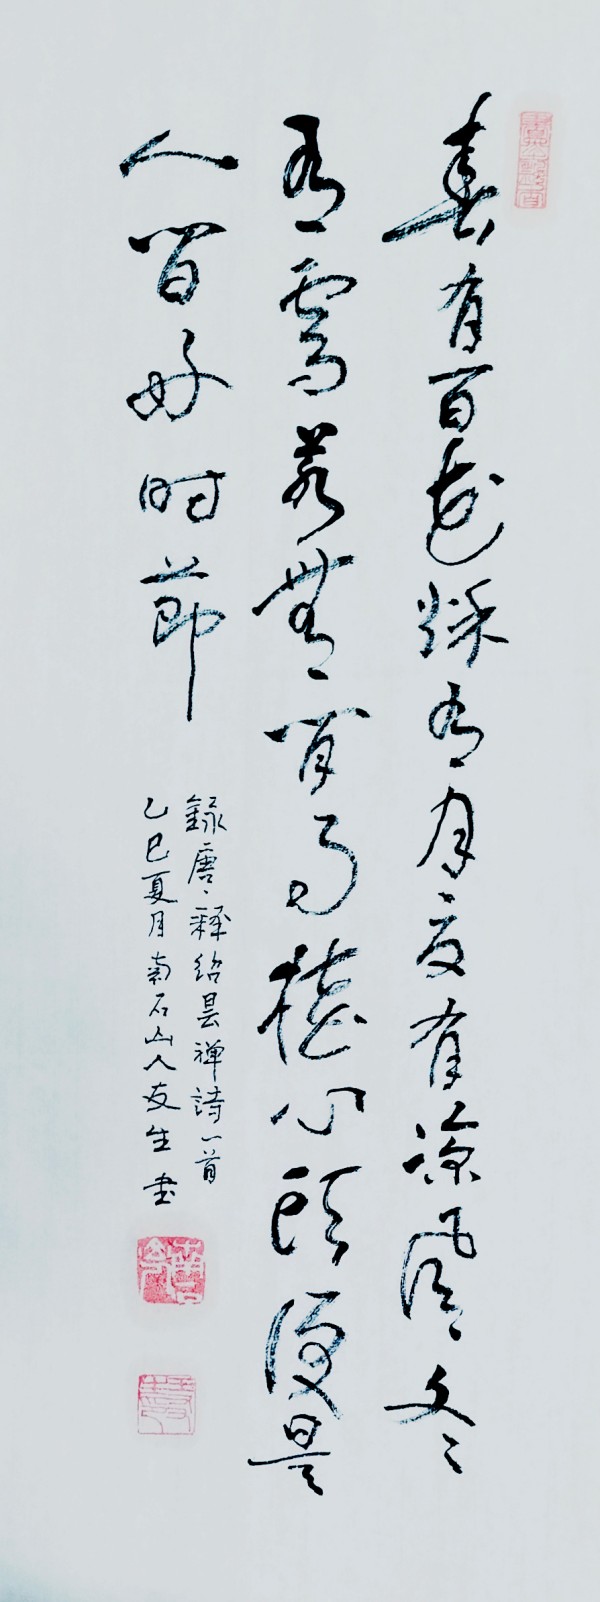 春有百花秋有月夏有涼風冬
有雪若無閒事挂心頭便是
人間好时節
録唐、釋绍昙禅詩一首
乙巳夏月南石山人友生书